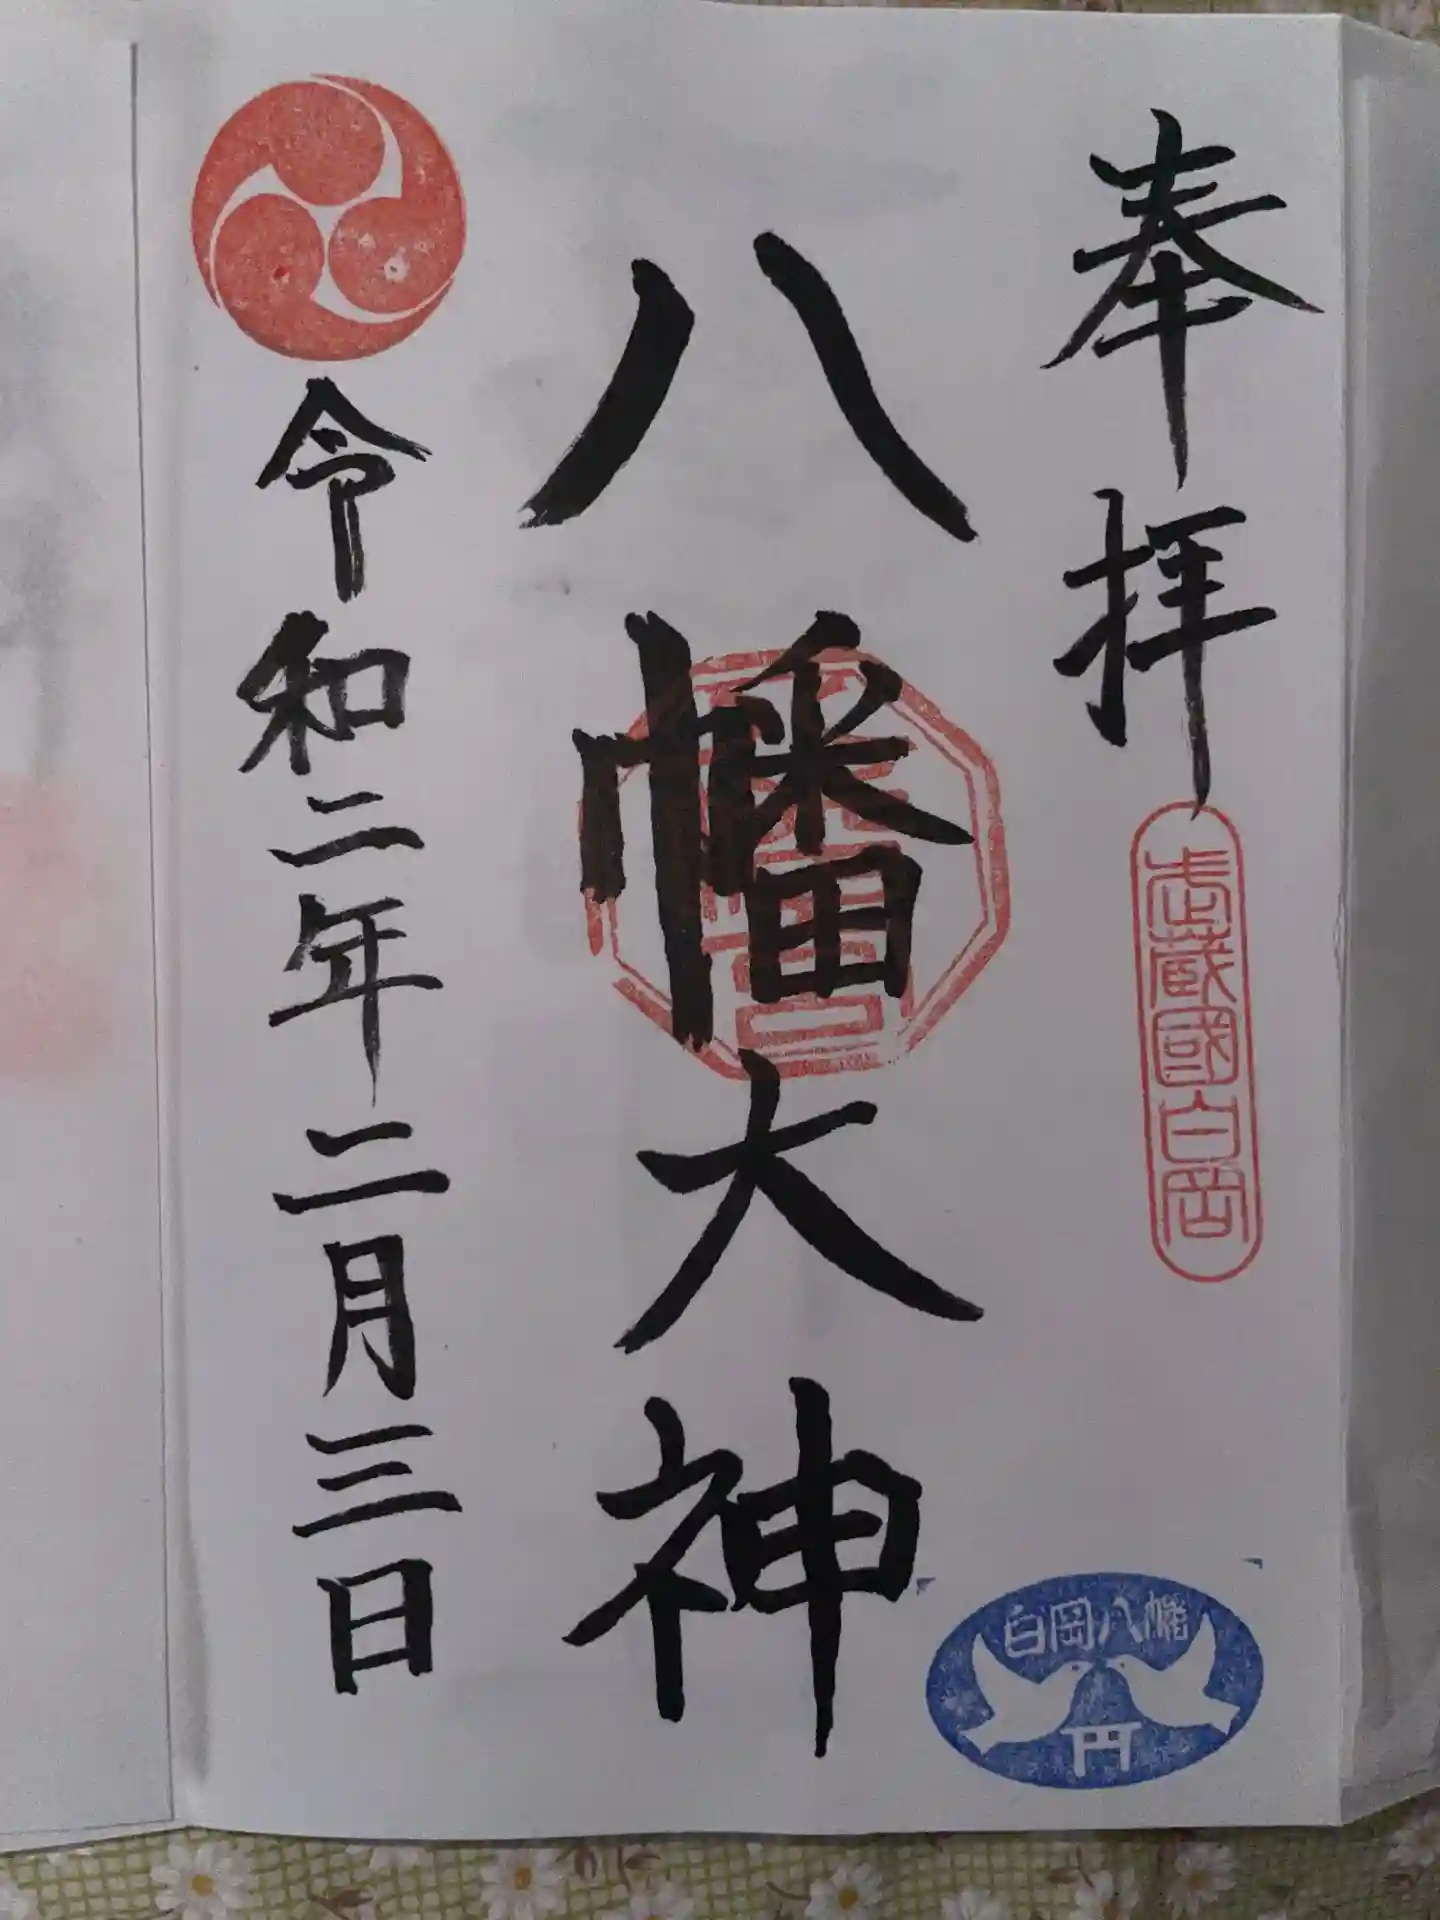 奉拝
武蔵國白岡
白岡八幡
八幡大神
令和二年二月三日